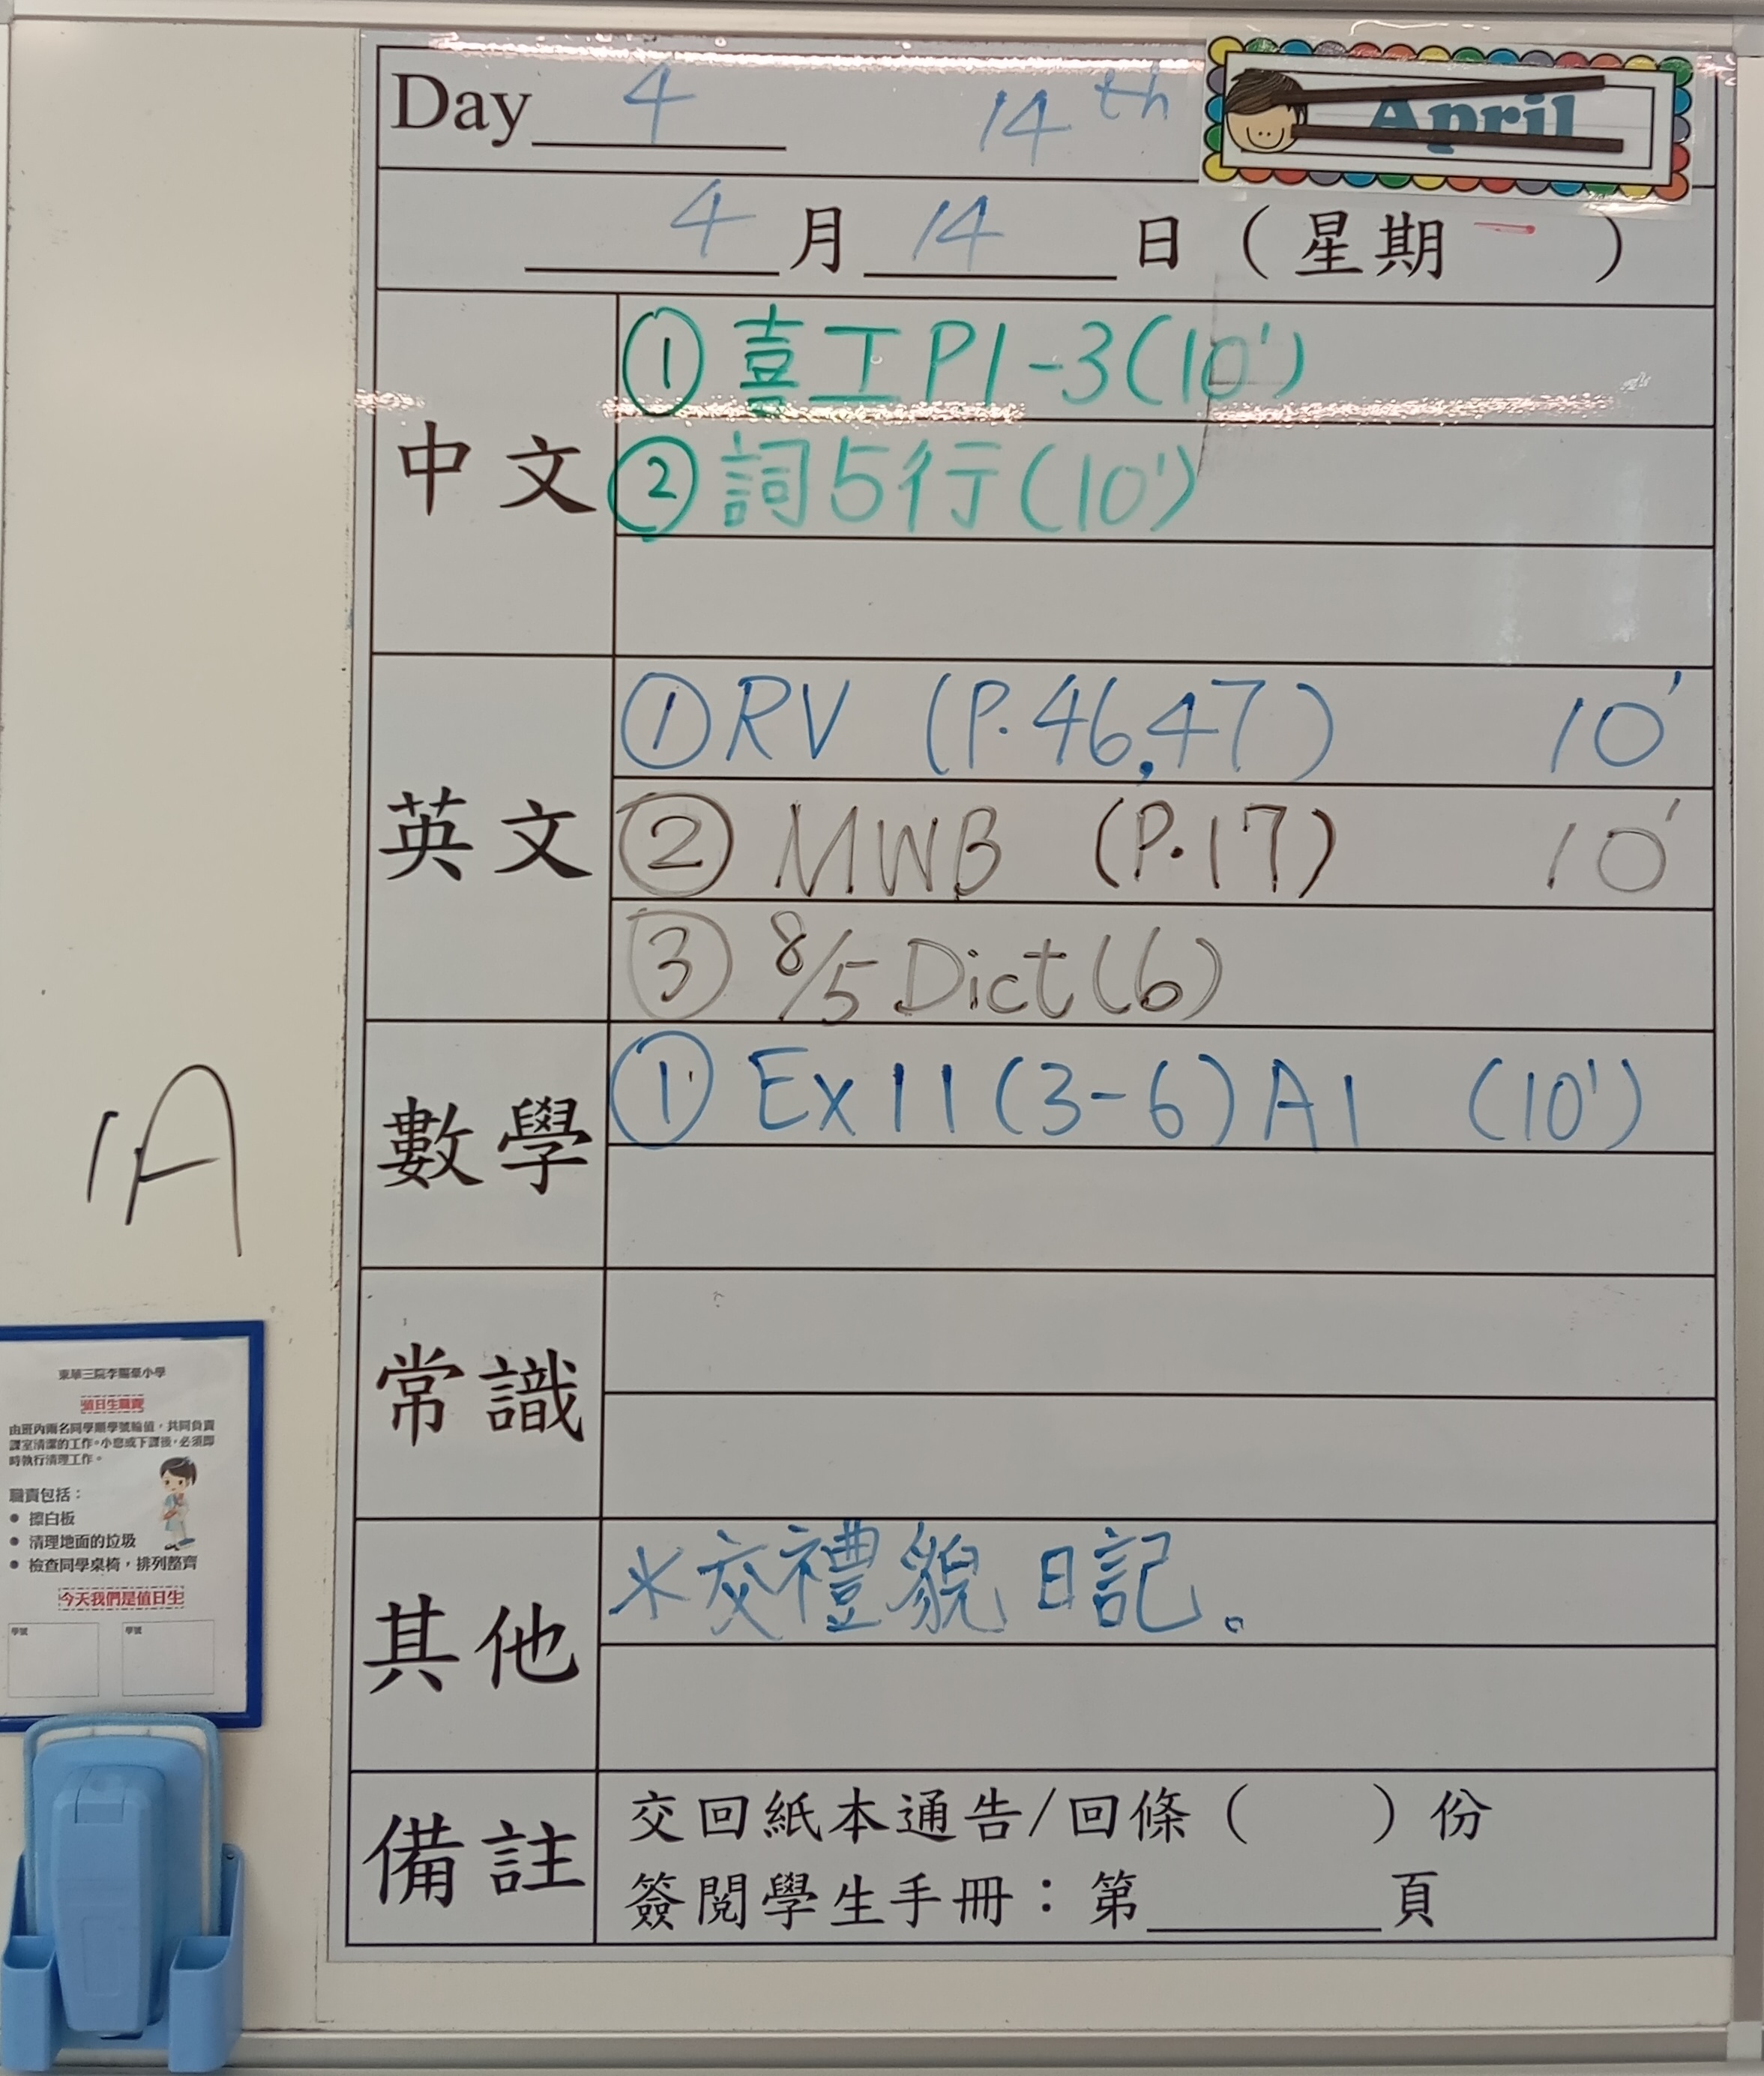 Day 4 14th April
4月14日（星期一）
中文
①喜工P1-3(10')
②詞5行(10')
英文
①RV (P.46,47) 10'
②MWB (P.17) 10'
③8/5 Dict(6)
數學
①Ex11(3-6)A1 (10')
常識
其他
*交禮貌日記。
備註
交回紙本通告/回條（ ）份
簽閱學生手冊：第______頁
1A
東華三院李賜豪小學
值日生職責
由班內兩名同學順學號輪值，共同負責
課室清潔的工作。小息或下課後，必須即
時執行清理工作。
職責包括：
● 擦白板
● 清理地面的垃圾
● 檢查同學桌椅，排列整齊
今天我們是值日生
學號 學號